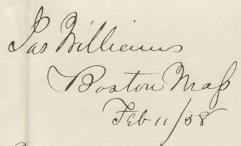 Jas Williams
Boston Mass
Feb 11/58